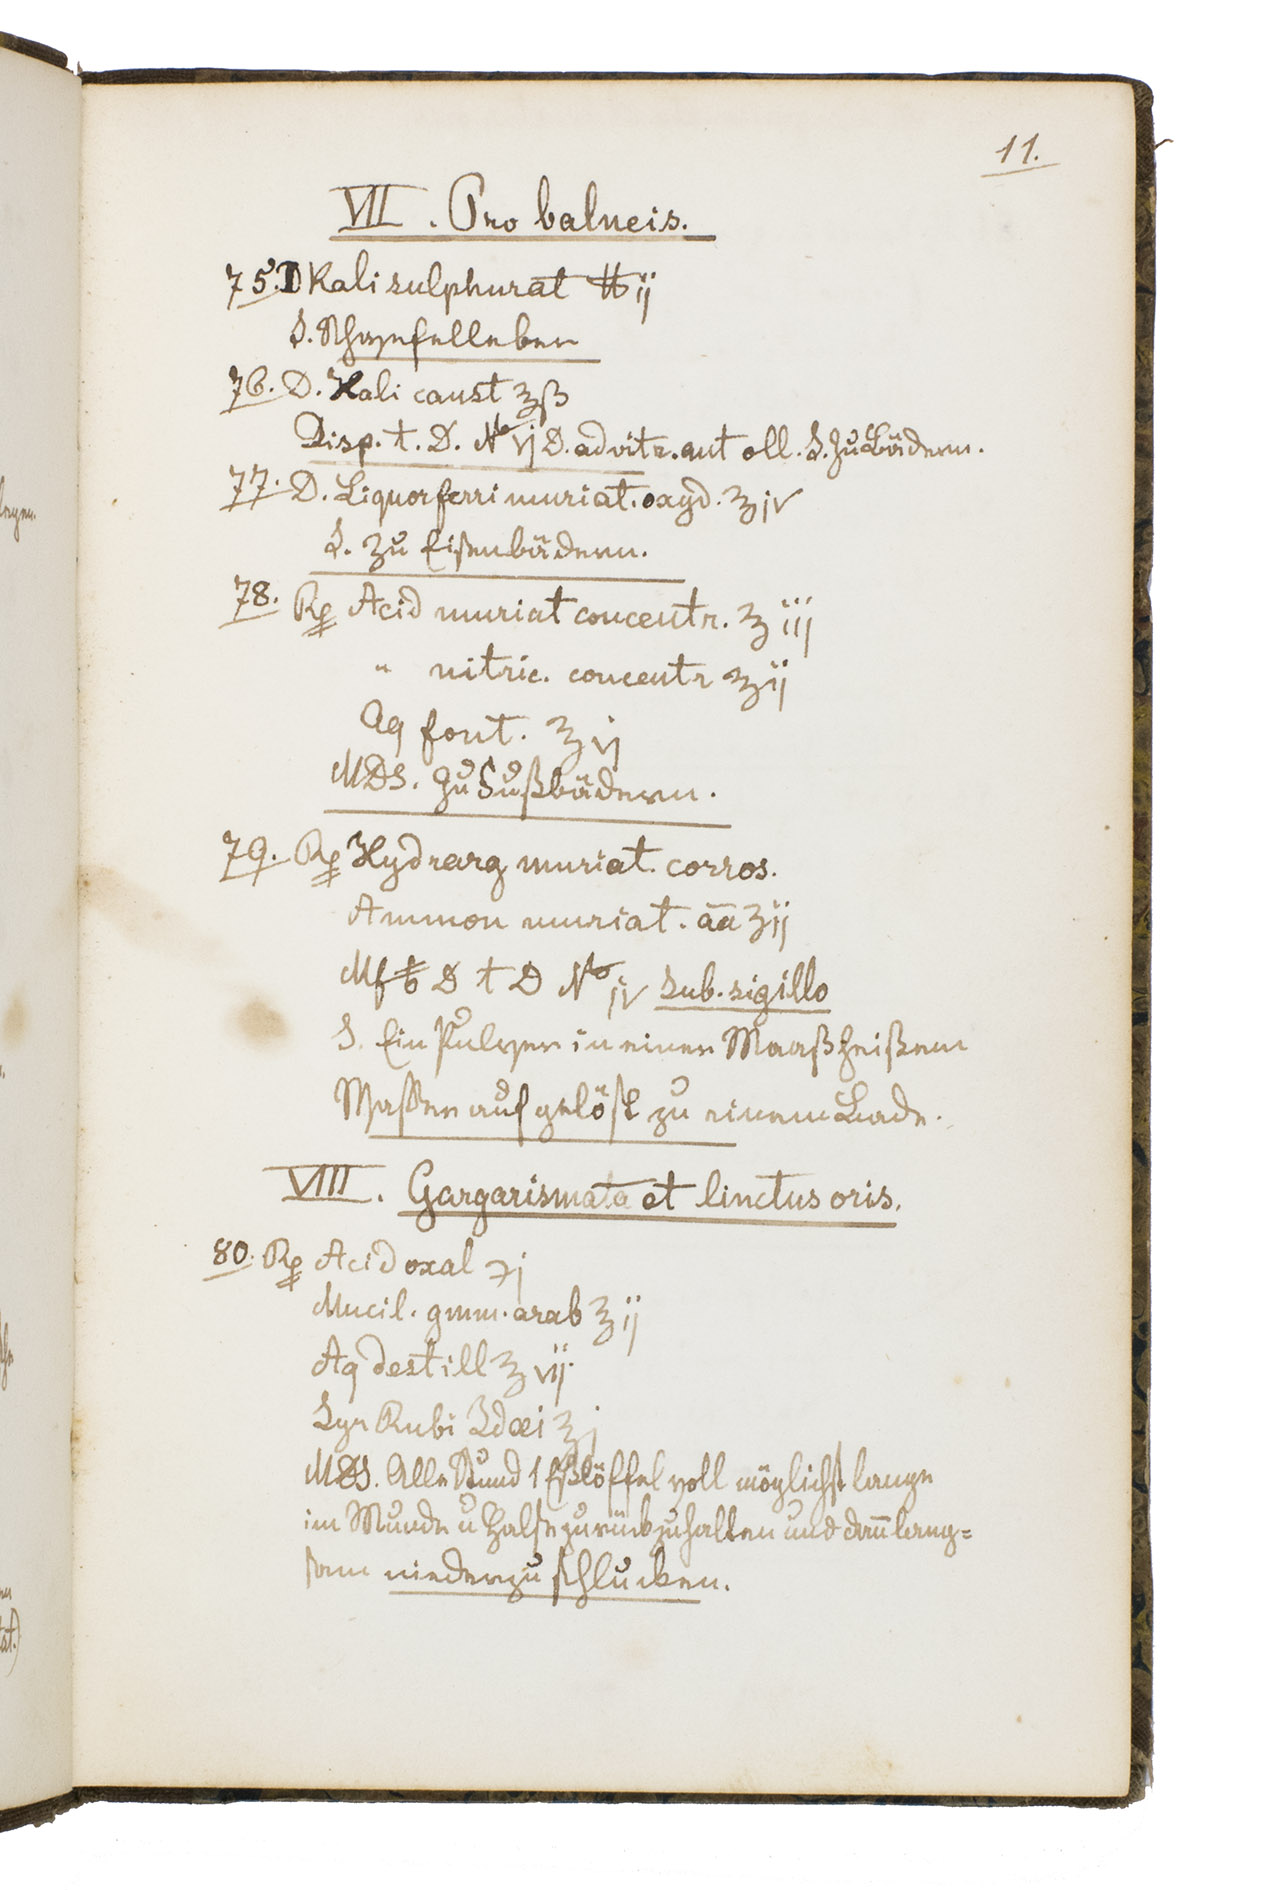 11.
VII. Pro balneis.
75. D Kali sulphurat ℔ ij
S. Schwefelleber
76. D. Kali caust ℥ß
Disp. t. D. No vj D. ad vitr. aut oll. S. Zu Bädern.
77. D. Liquor ferri muriat. oxyd. ℥ iv
S. Zu Eisenbädern.
78. Rp Acid muriat concentr. ℥ iij
" nitric. concentr ℥ ij
Aq font. ℥ vj
MDS. Zu Fußbädern.
79. Rp Hydrarg muriat. corros.
Ammon muriat. āā ʒ ij
Mf D t D No iv sub. sigillo
S. Ein Pulver in einer Maaß heißem
Wasser aufgelöst zu einem Bade.
VIII. Gargarismata et linctus oris.
80. Rp Acid oxal ℈ j
Mucil. gmm. arab ℥ ij
Aq destill ℥ vij
Syr Rubi Idæi ℥ j
MDS. Alle Stund 1 Eßlöffel voll möglichst lange
im Munde u Halse zurückzuhalten und dan̄ lang=
sam niederzuschlucken.